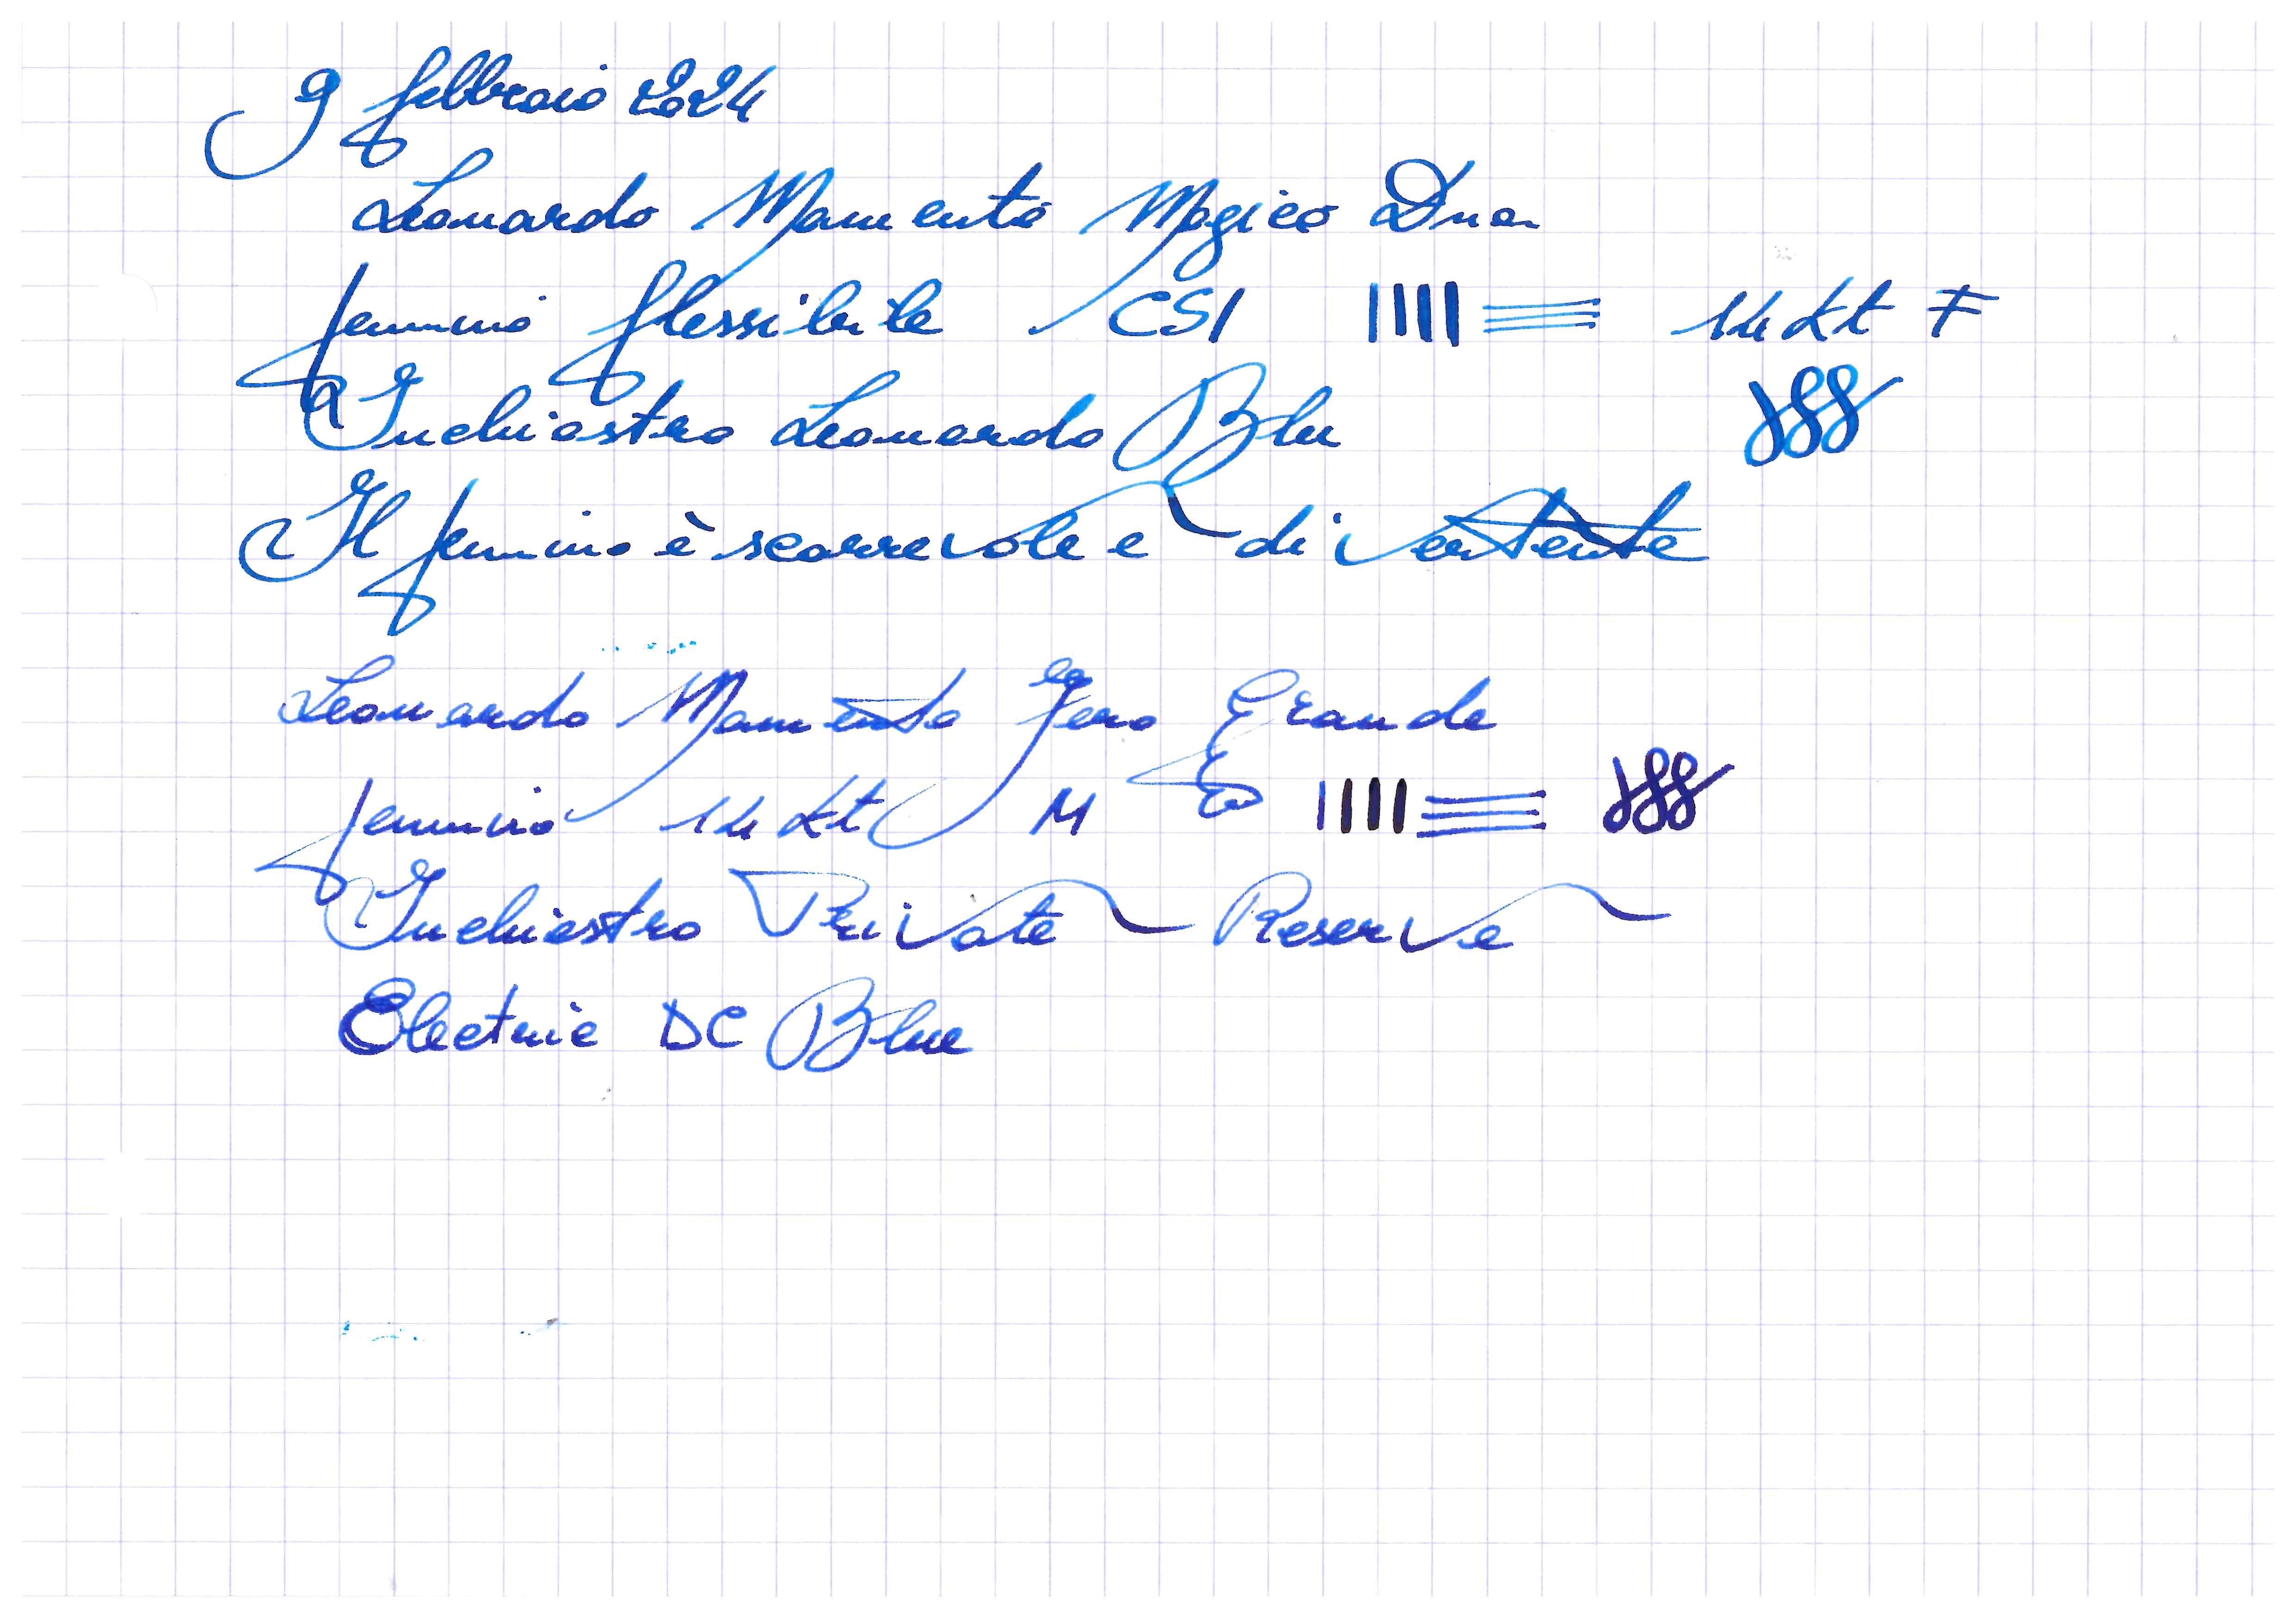 9 febbraio 2024
Leonardo Momento Magico Dna
pennino flessibile CSI 14 Kt F
Inchiostro Leonardo Blu
Il pennino è scorrevole e divertente
Leonardo Momento Zero Grande
pennino 14 Kt M
Inchiostro Private Reserve
Electric DC Blue